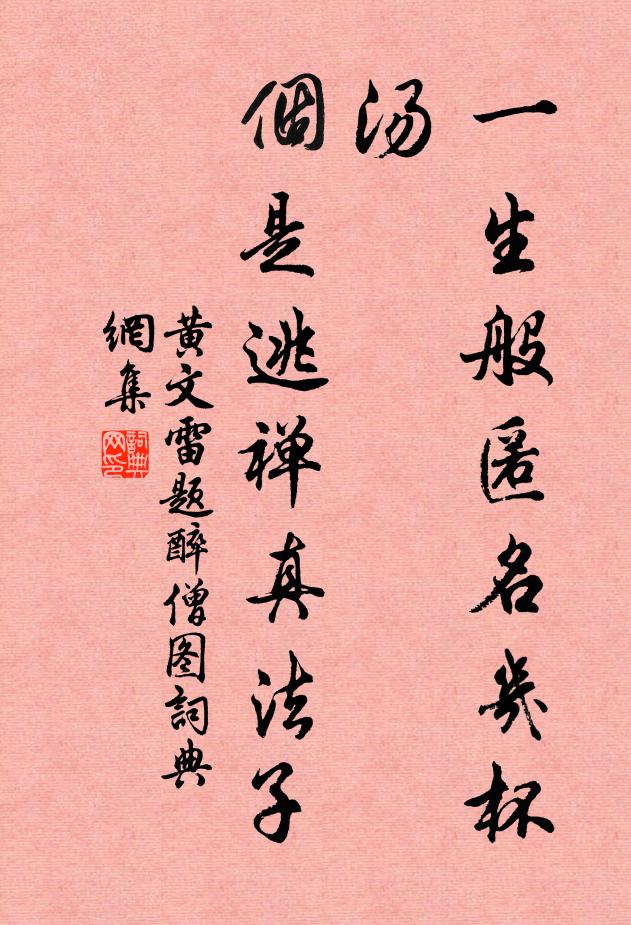 一生般匿名幾杯
汤
個是逃禅真法子
黄文雷题醉僧图詞典
網集
詞典
网印